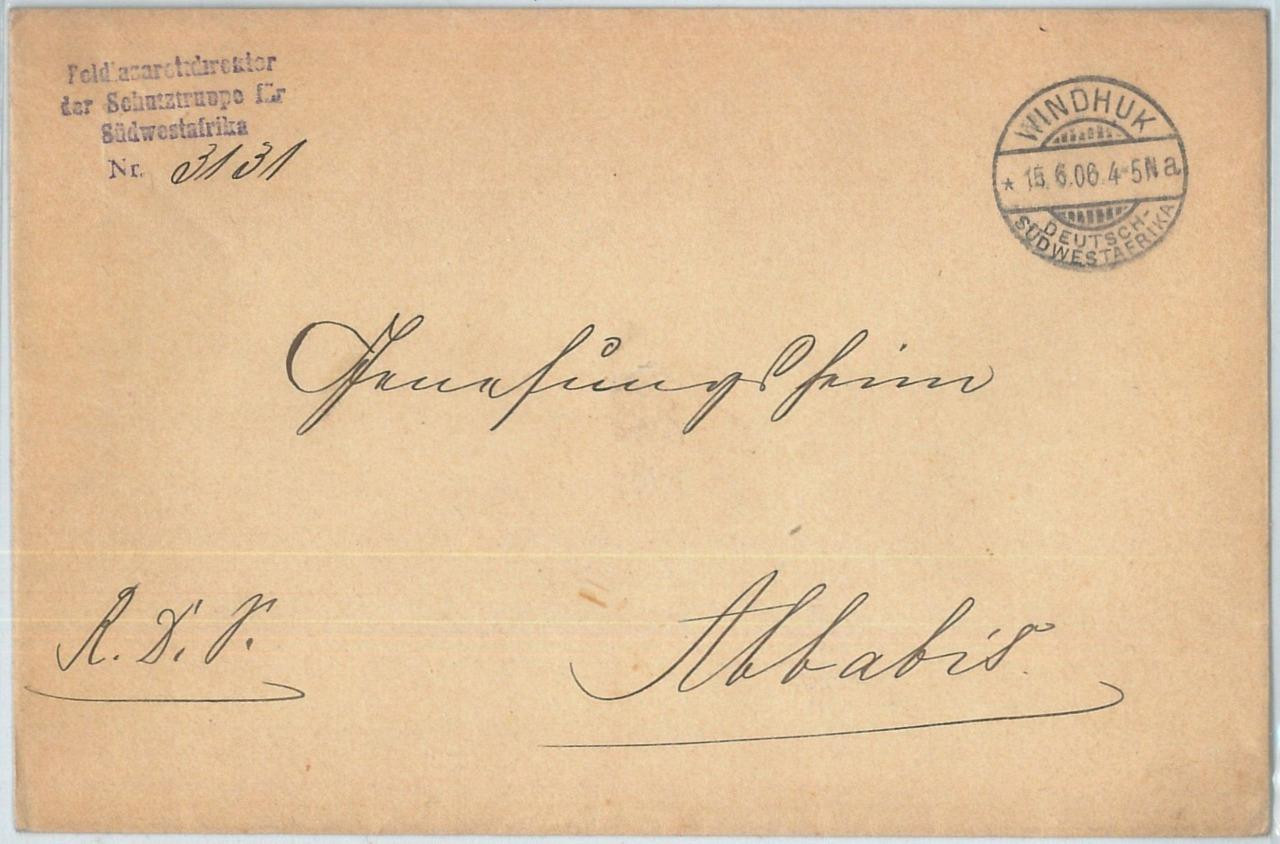 Feldlazarettdirektor
der Schutztruppe für
Südwestafrika
Nr. 3131
WINDHUK
* 15.6.06.4-5N a
DEUTSCH-
SÜDWESTAFRIKA
Genesungsheim
R. D. S.
Abbabis.